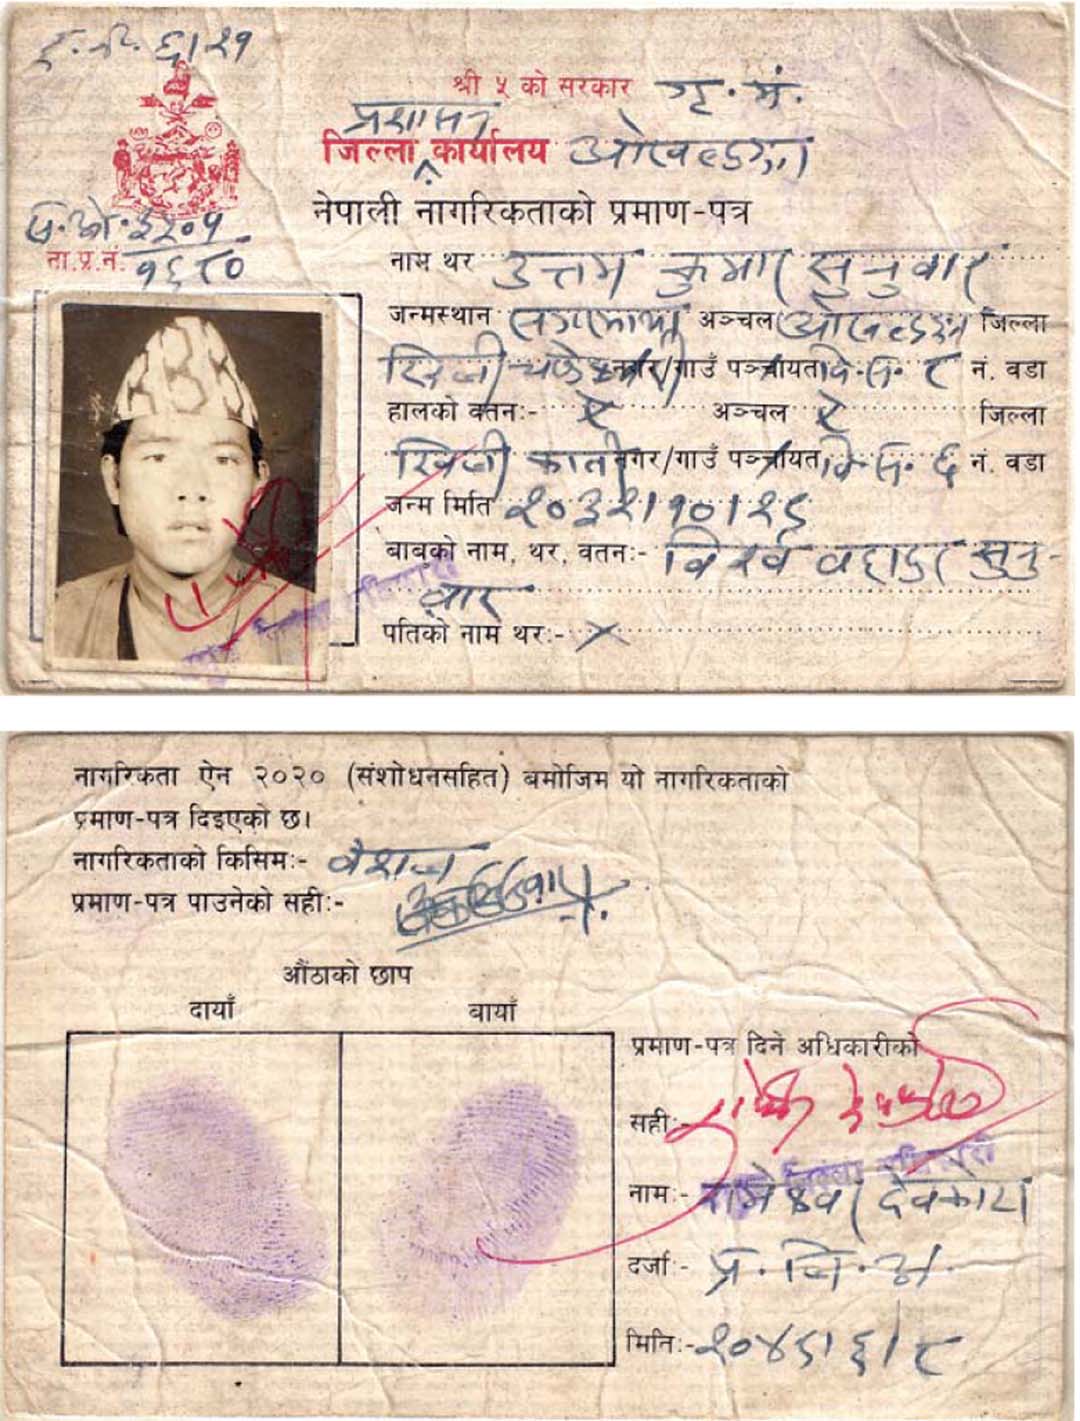 श्री ५ को सरकार गृ. मं.
प्रशासन
जिल्ला कार्यालय ओखलढुङ्गा
नेपाली नागरिकताको प्रमाण-पत्र
ना.प्र.नं. १६८०
नाम थर उत्तम कुमार सुनुवार
जन्मस्थान सगरमाथा अञ्चल ओखलढुङ्गा जिल्ला
खिजी नगर/गाउँ पञ्चायत वि.स. ८ नं. वडा
हालको वतन:- ऐ अञ्चल ऐ जिल्ला
खिजी काती नगर/गाउँ पञ्चायत वि.स. ६ नं. वडा
जन्म मिति २०३२।१०।२६
बाबुको नाम, थर, वतन:- विर्ख वहादुर सुनु-
वार
पतिको नाम थर:- ×
नागरिकता ऐन २०२० (संशोधनसहित) बमोजिम यो नागरिकताको
प्रमाण-पत्र दिइएको छ।
नागरिकताको किसिम:- वंशज
प्रमाण-पत्र पाउनेको सही:-
औंठाको छाप
दायाँ बायाँ
प्रमाण-पत्र दिने अधिकारीको
सही:-
नाम:- रामेश्वर देवकोटा
दर्जा:- प्र.जि.अ.
मिति:- २०४८।६।८